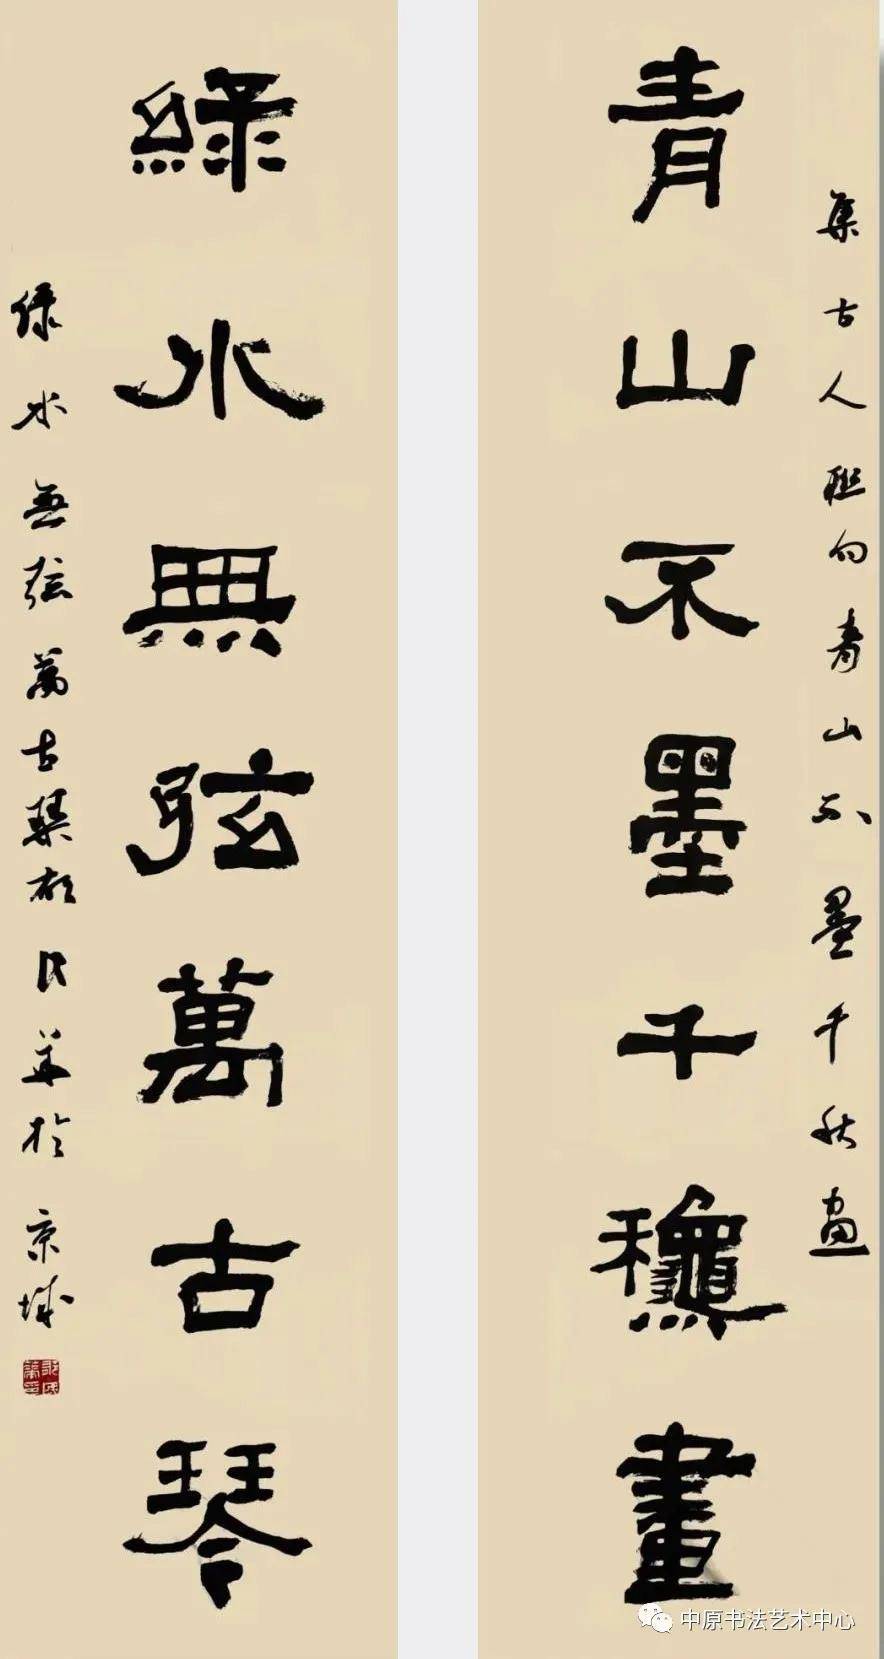 集古人联句青山不墨千秋画
青山不墨千龝畫
綠水無弦萬古琴
绿水無弦萬古琴
民華於京城
中原书法艺术中心